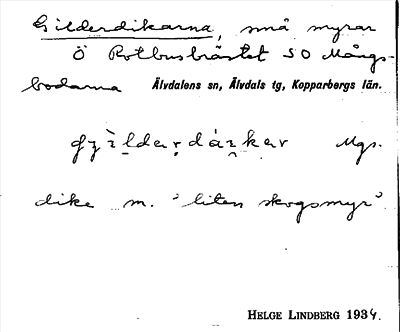 Gilderdikarna, små myrar
Ö Rotbusbråstet SO Mångs-
bodarna Älvdalens sn, Älvdals tg, Kopparbergs län.
Mgs.
dike m. 'liten skogsmyr'
HELGE LINDBERG 1934.